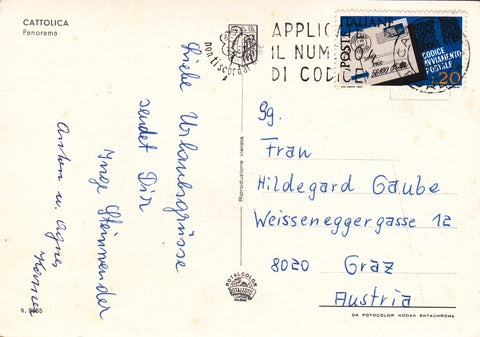 CATTOLICA
Panorama
Liebe Urlaubsgrüsse
sendet Dir
Inge Steinwender
Anton u. Agnes
N. 
Riproduzione vietata
ROTALCOLOR
ROTALFOTO
MILANO
nontiscordardime
APPLIC
IL NUM
DI CODIC
POSTE ITALIANE
CODICE
AVVIAMENTO
POSTALE
L. 20
Gg.
Frau
Hildegard Gaube
Weisseneggergasse 12
8020 Graz
Austria
DA FOTOCOLOR KODAK EKTACHROME